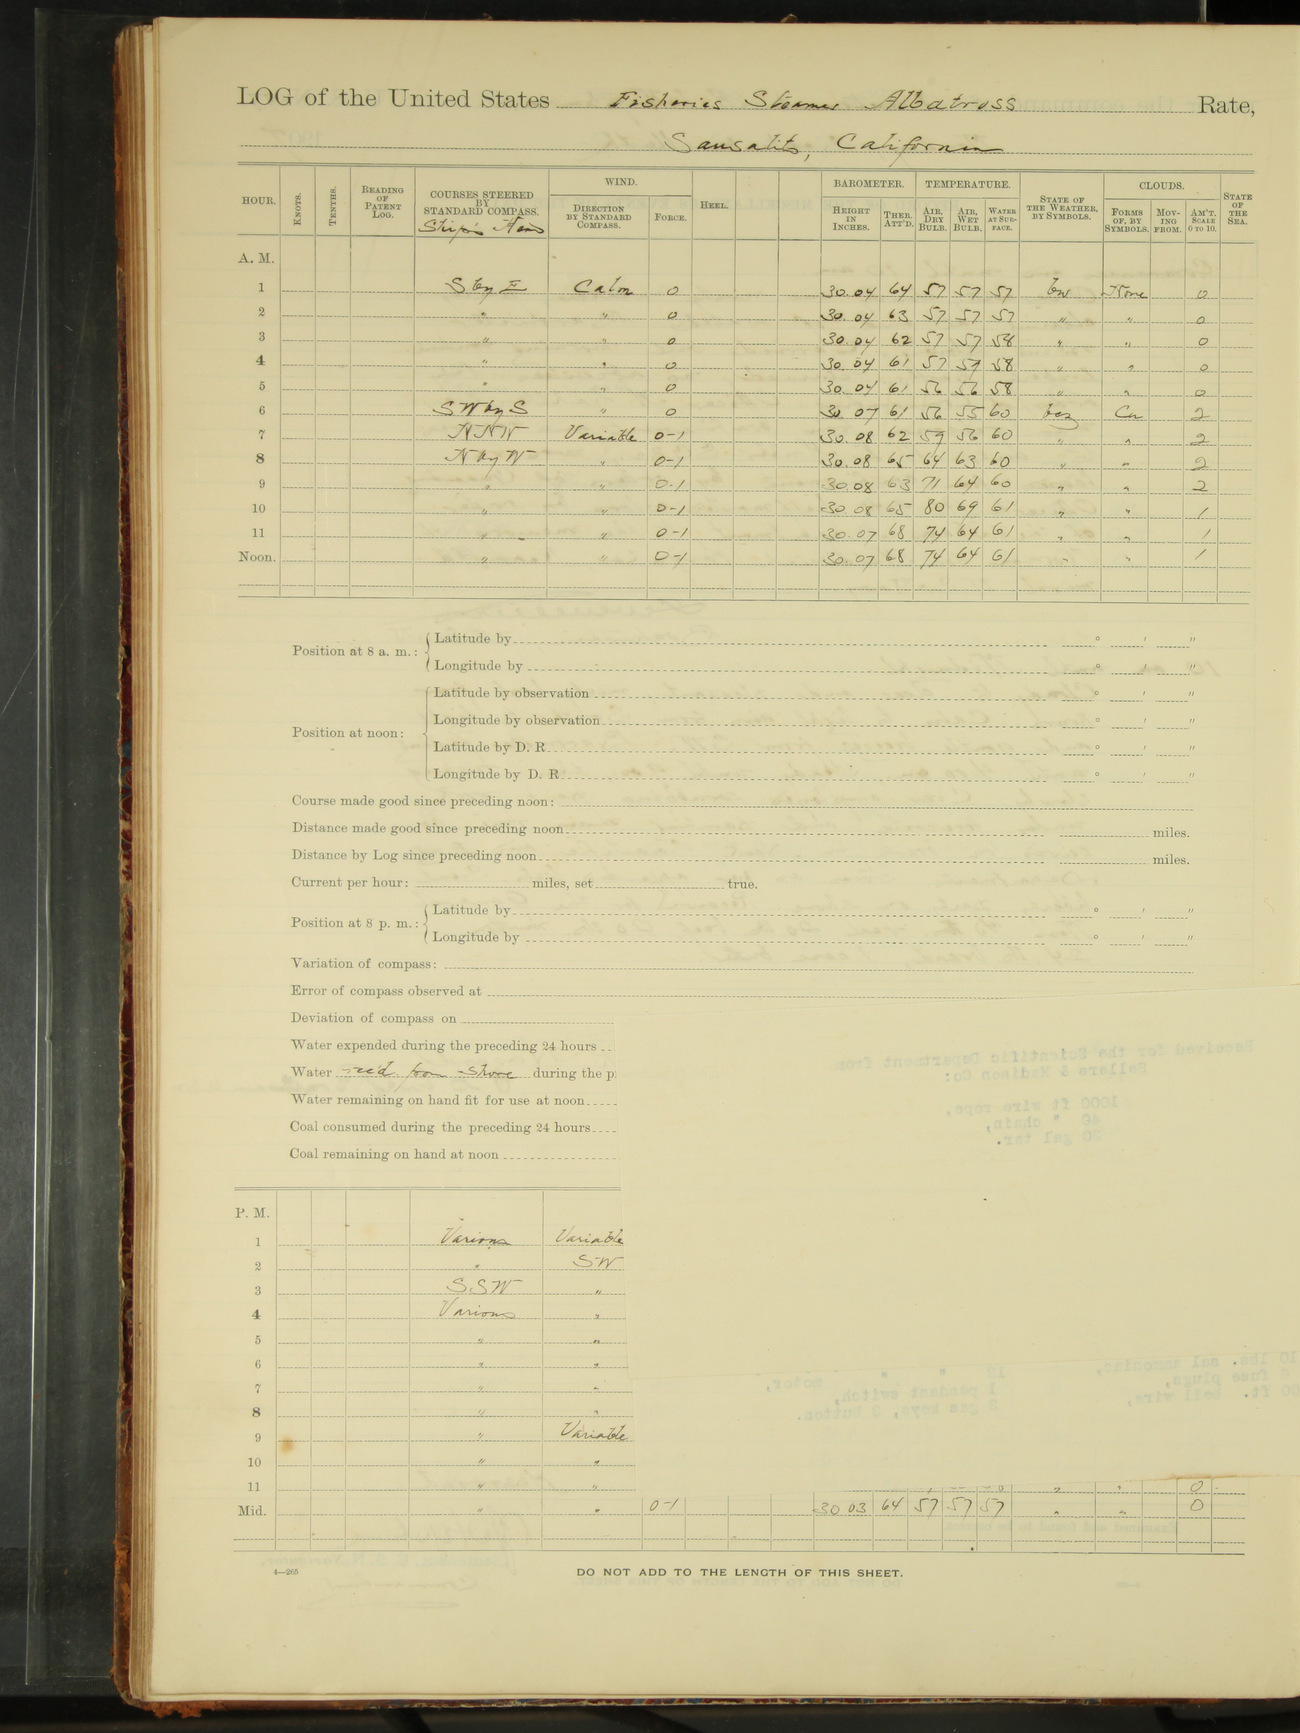 LOG of the United States Fisheries Steamer Albatross Rate,
Sausalito, California
HOUR. KNOTS. TENTHS. READING OF PATENT LOG. COURSES STEERED BY STANDARD COMPASS. Ship's WIND. DIRECTION BY STANDARD COMPASS. FORCE. HEEL. BAROMETER. HEIGHT IN INCHES. THER. ATT'D. TEMPERATURE. AIR, DRY BULB. AIR, WET BULB. WATER AT SUR-FACE. STATE OF THE WEATHER, BY SYMBOLS. CLOUDS. FORMS OF, BY SYMBOLS. MOV-ING FROM. AM'T. SCALE 0 TO 10. STATE OF THE SEA.
A. M.
1 S by E Calm 0 30.04 64 57 57 57 None 0
2 " " 0 30.04 63 57 57 57 " " 0
3 " " 0 30.04 62 57 57 58 " " 0
4 " " 0 30.04 61 57 57 58 " " 0
5 " " 0 30.04 61 56 56 58 " " 0
6 SW by S " 0 30.07 61 56 55 60 bcz Cu 2
7 NNW Variable 0-1 30.08 62 59 56 60 " " 2
8 N by W " 0-1 30.08 65 64 63 60 " " 2
9 " " 0-1 30.08 63 71 64 60 " " 2
10 " " 0-1 30.08 65 80 69 61 " " 1
11 " " 0-1 30.07 68 74 64 61 " " 1
Noon. " " 0-1 30.07 68 74 64 61 " " 1
Position at 8 a. m.: Latitude by ° ′ ″
Longitude by ° ′ ″
Position at noon: Latitude by observation ° ′ ″
Longitude by observation ° ′ ″
Latitude by D. R. ° ′ ″
Longitude by D. R. ° ′ ″
Course made good since preceding noon:
Distance made good since preceding noon miles.
Distance by Log since preceding noon miles.
Current per hour: miles, set true.
Position at 8 p. m.: Latitude by ° ′ ″
Longitude by ° ′ ″
Variation of compass:
Error of compass observed at
Deviation of compass on
Water expended during the preceding 24 hours
Water rec'd from shore during the p
Water remaining on hand fit for use at noon
Coal consumed during the preceding 24 hours
Coal remaining on hand at noon
P. M.
1 Various Variable
2 " SW
3 SSW "
4 Various "
5 " "
6 " "
7 " "
8 " "
9 " Variable
10 " "
11 " " " " 0
Mid. " " 0-1 30 03 64 57 57 57 " " 0
4—265
DO NOT ADD TO THE LENGTH OF THIS SHEET.